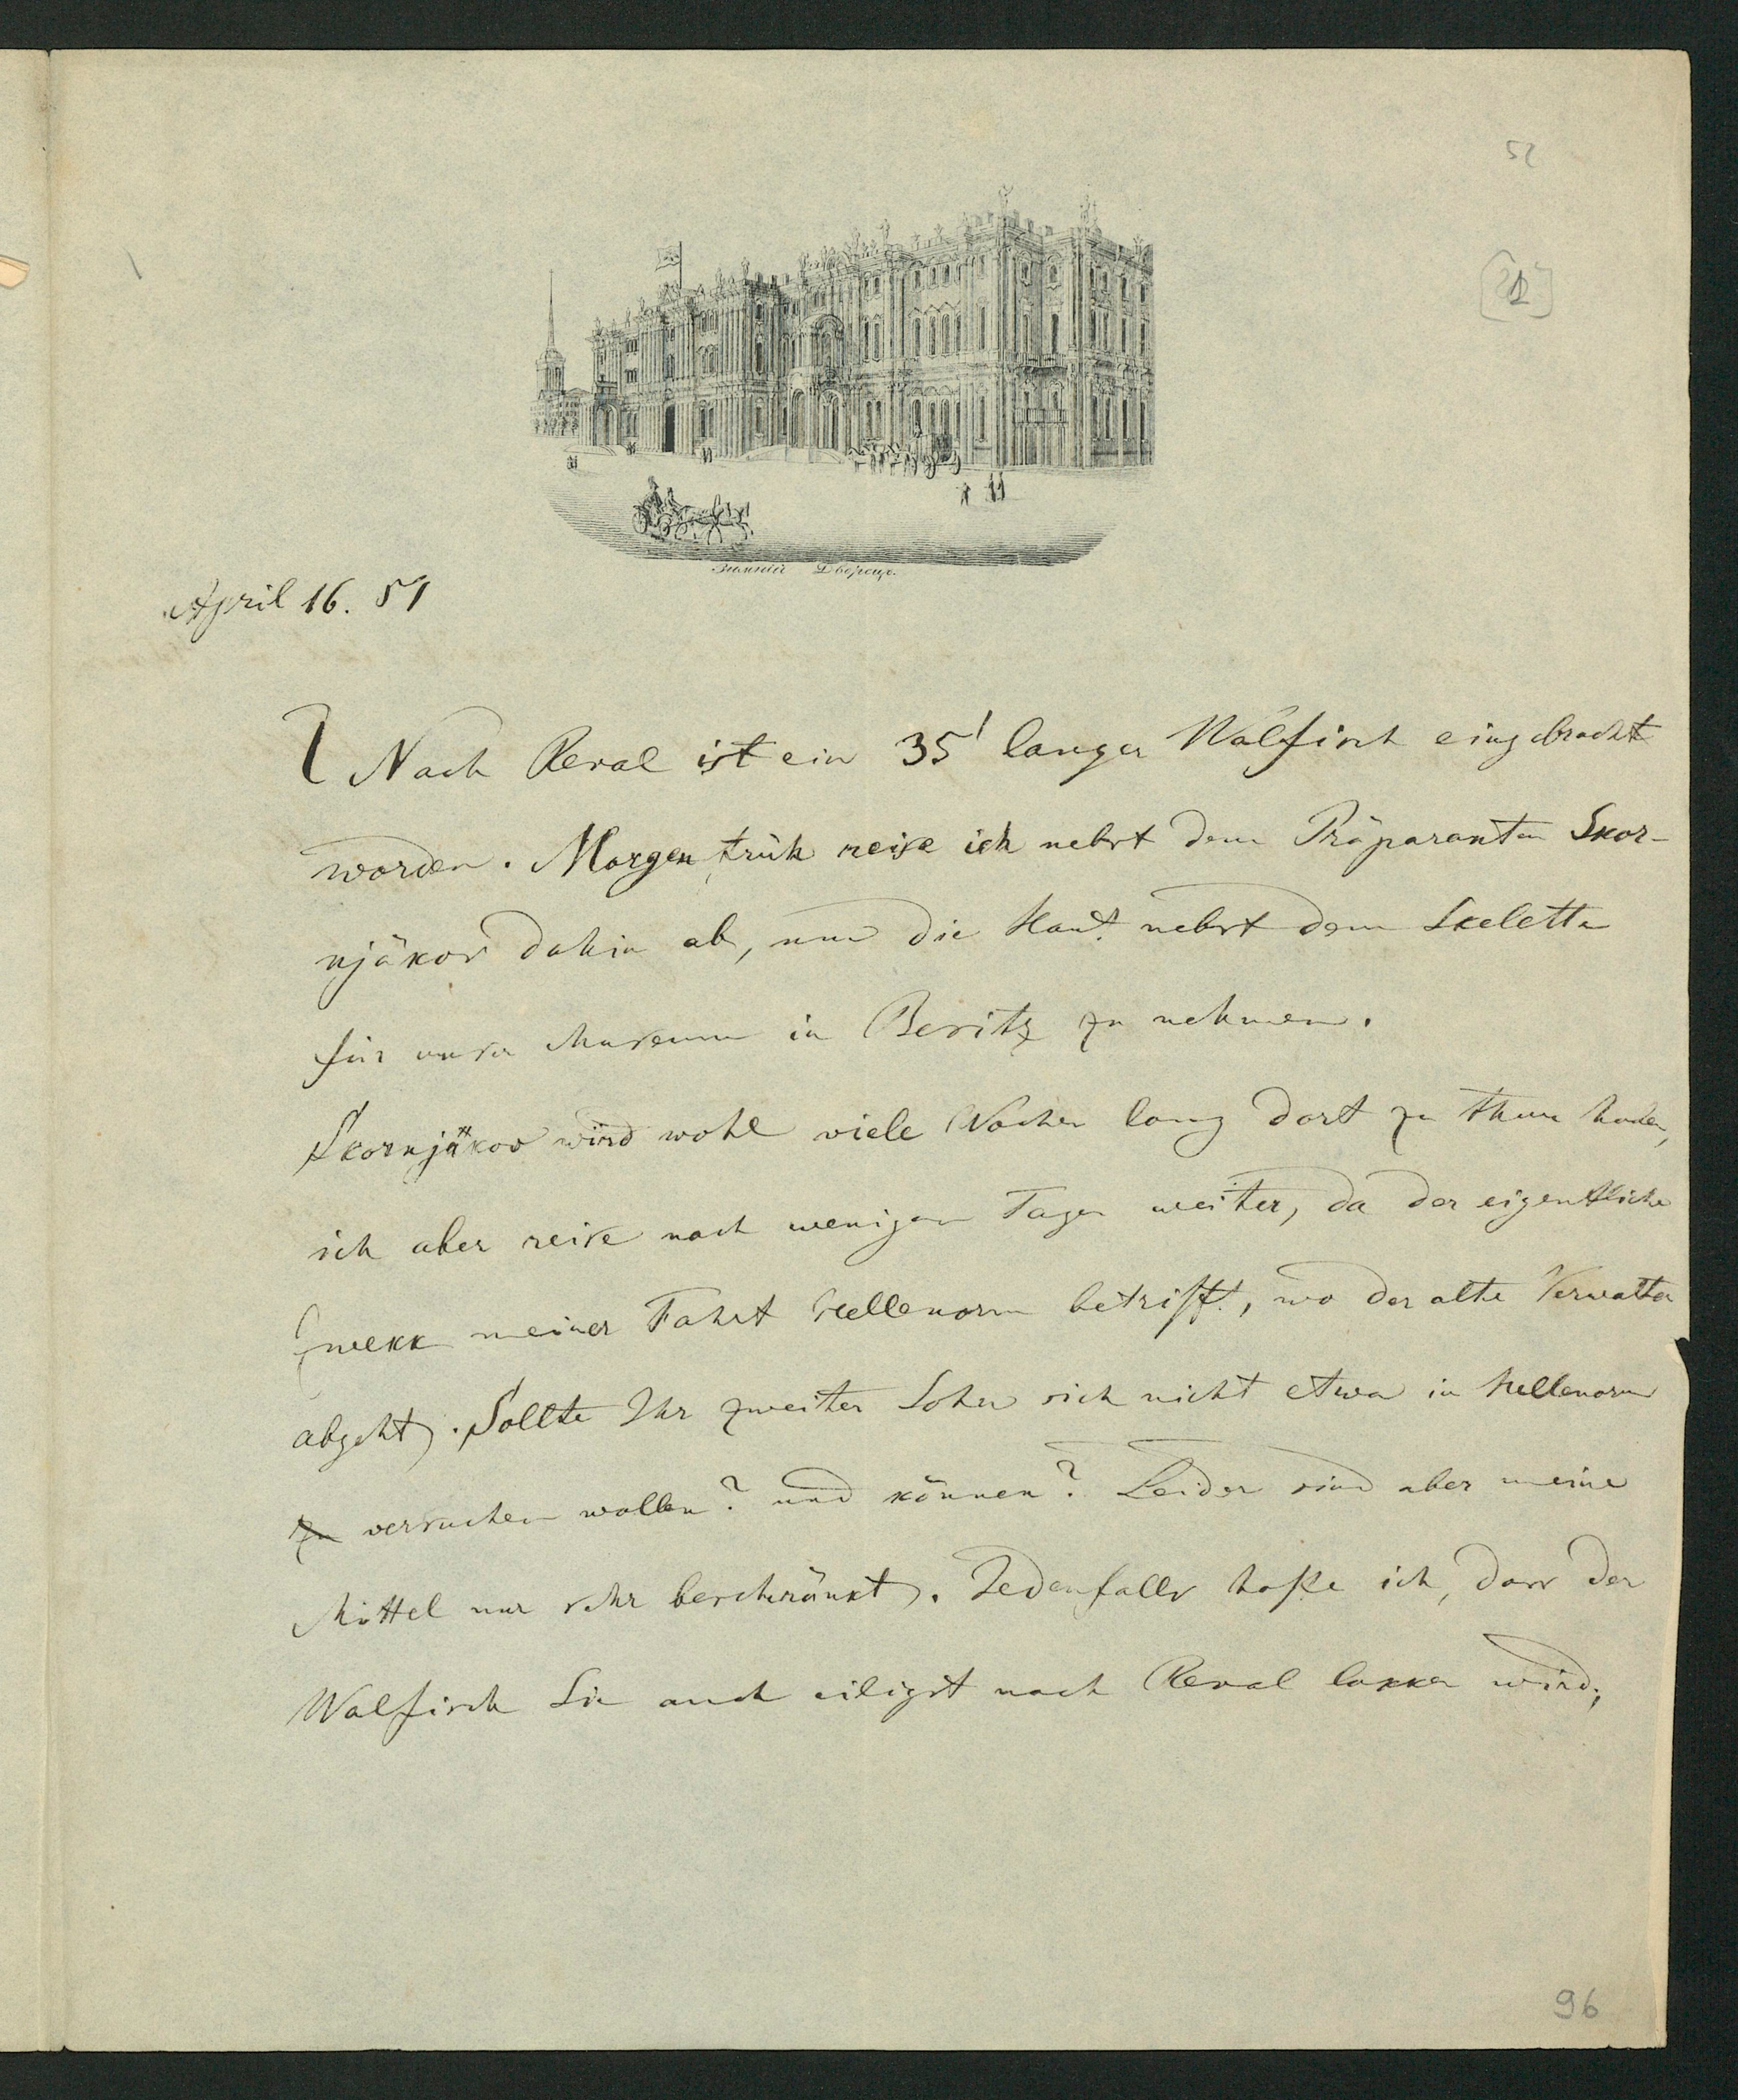 52
Зимній Дворецъ.
April 16. 51
Nach Reval ist ein 35' langer Walfisch eingebracht
worden. Morgen früh reise ich nebst dem Präparanten Skor-
njäkov dahin ab, um die Haut nebst dem Skelette
für unser Museum in Besitz zu nehmen.
Skornjäkov wird wohl viele Wochen lang dort zu thun haben,
ich aber reise nach wenigen Tagen weiter, da der eigentliche
Zwekk meiner Fahrt Hellenorm betrifft, wo der alte Verwalter
abgeht. Sollte Ihr zweiter Sohn sich nicht etwa in Hellenorm
zu versuchen wollen? und können? Leider sind aber meine
Mittel nur sehr beschränkt. Jedenfalls hoffe ich, dass der
Walfisch Sie auch eiligst nach Reval lokken wird;
96